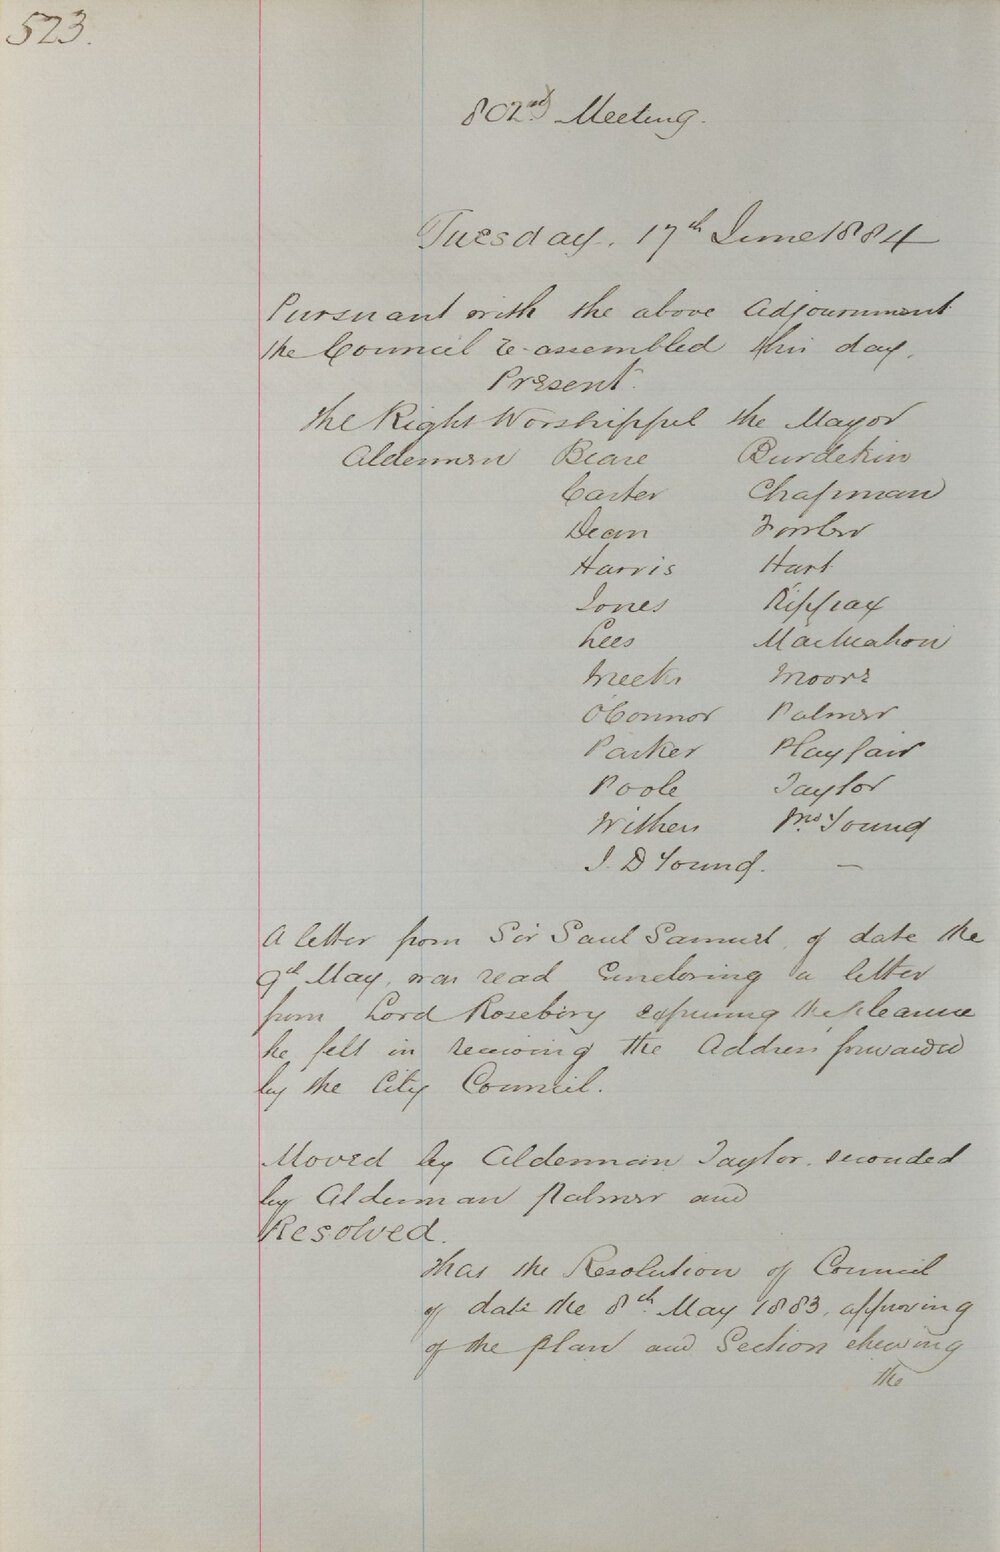 523.
802nd Meeting.
Tuesday, 17th June 1884
Pursuant with the above Adjournment
the Council re-assembled this day.
Present.
the Right Worshipful the Mayor
Aldermen Beare Burdekin
Carter Chapman
Dean Fowler
Harris Hart
Jones Kippax
Lees MacMahon
Meeks Moore
O'Connor Palmer
Parker Playfair
Poole Taylor
Withers Young
J. D Young. —
A letter from Sir Saul Samuel, of date the
9th May, was read Enclosing a letter
from Lord Rosebery expressing the pleasure
he felt in receiving the Address forwarded
by the City Council.
Moved by Alderman Taylor, seconded
by Alderman Palmer and
Resolved.
That the Resolution of Council
of date the 8th May 1883, approving
of the plan and Section shewing
the